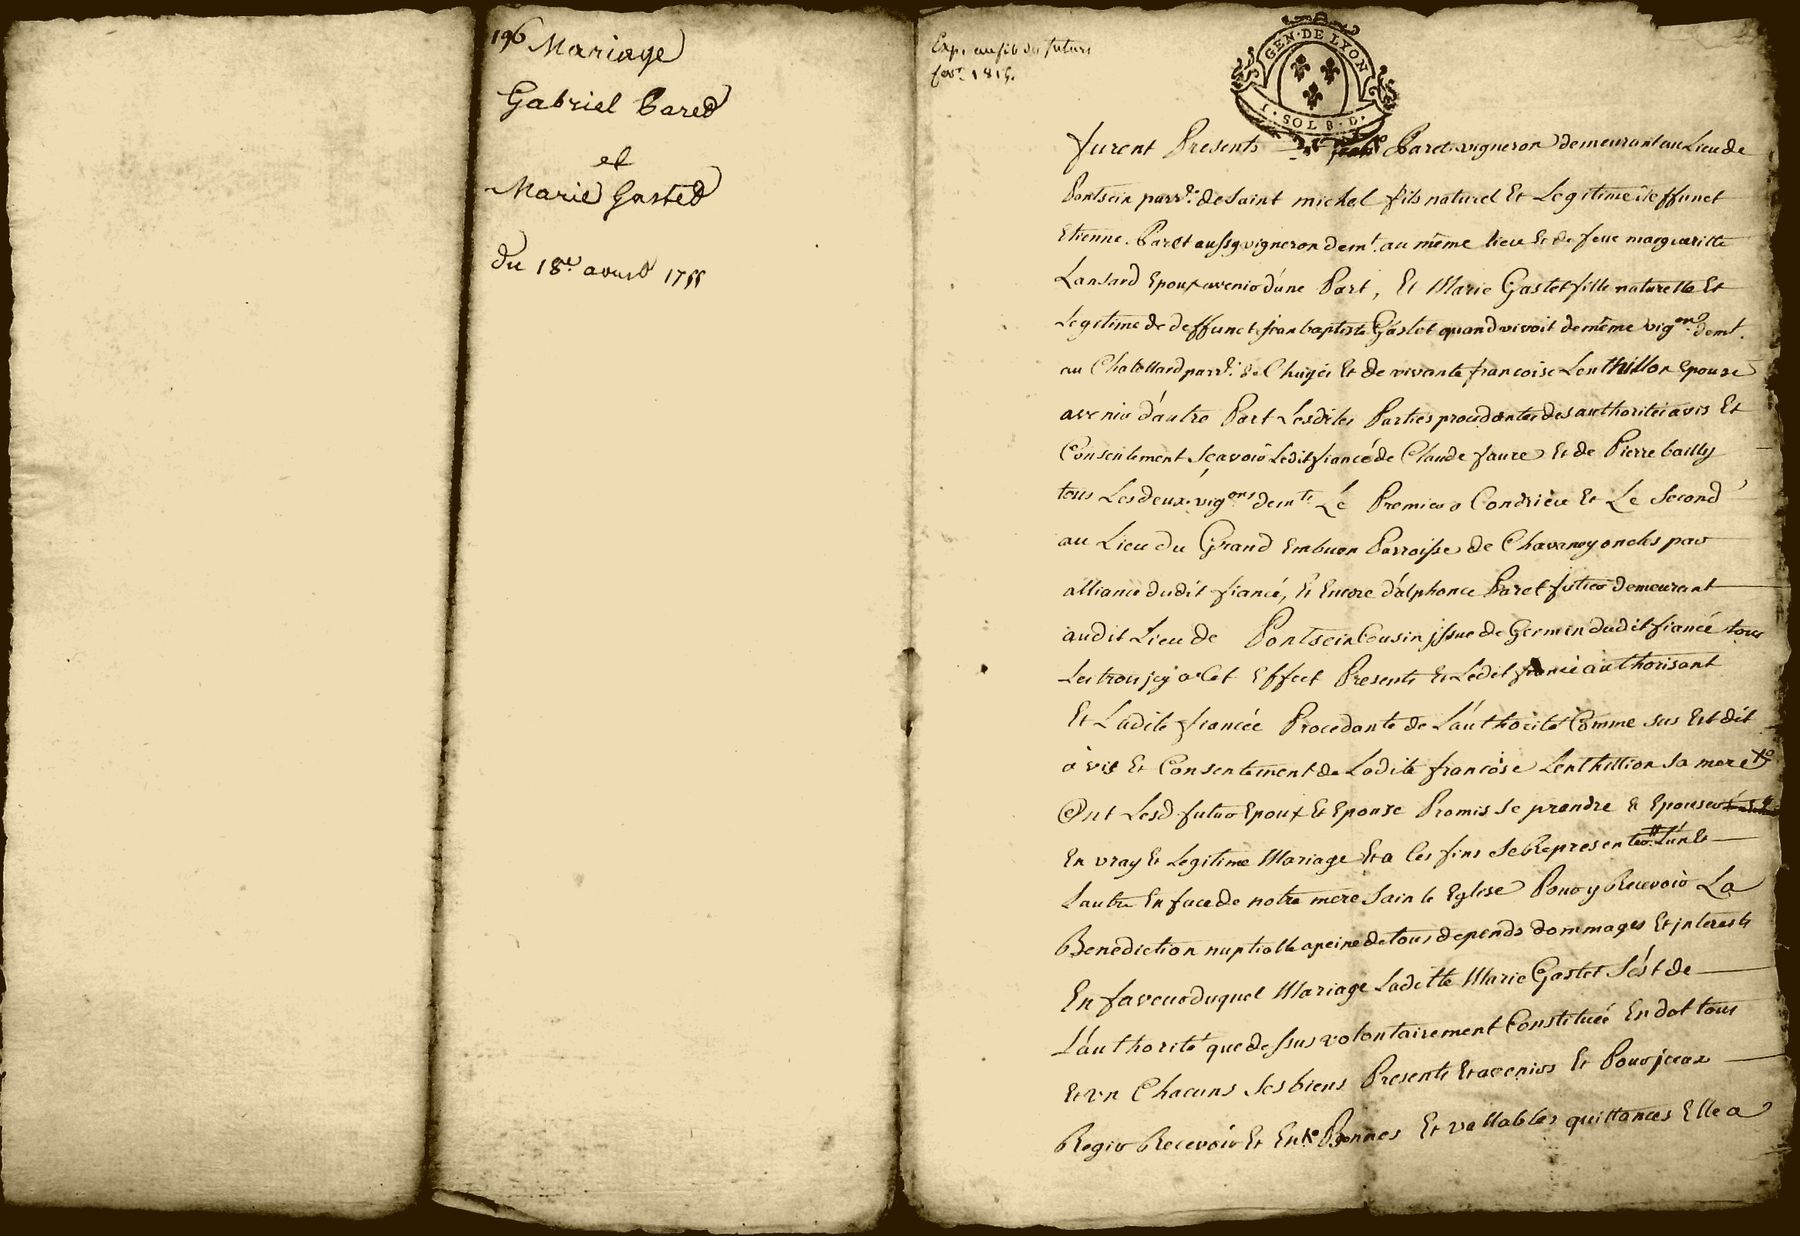 196 Mariage
Gabriel Bared
et
Marie Gasted
du 18e. avril 1755
Exp. au fils du futur
1815.
GEN. DE LYON
1. SOL 8. D.
furent Presents Paret vigneron demeurant au Lieu de
Pontsein parr.e de Saint michel fils naturel Et Legitime de deffunct
Etienne Paret aussy vigneron dem.t au même lieu Et de feue margueritte
Lansard Epoux avenir d'une Part, Et Marie Gastet fille naturelle Et
Legitime de deffunct jean baptiste Gastet quand vivoit de même vig.on dem.t
au Chatellard parr.e de Chuÿes Et de vivante francoise Lenthillon Epouse
avenir d'autre Part Lesdites Parties procedantes des authorités avis Et
Consentement Scavoir Ledit fiancé de Claude faure Et de Pierre bailly
tous Les deux vig.ons dem.ts Le Premier a Condrieu Et Le Second
au Lieu du Grand Embuen Parroisse de Chavanay oncles par
alliance dudit fiancé, Et Encore d'alphonce Paret futier demeurant
audit Lieu de Pontsein Cousin jssue de Germin dudit fiancé tous
Les trois jcy a Cet Effect Presents Et Ledit fiancé authorisant
Et Ladite fiancée Procedante de L'authorité Comme sus Est dit
avis Et Consentement de Ladite francoise Lenthillion sa mere
Ont Lesd. futur Epoux Et Epouse Promis Se prendre Et Epouser
En vray Et Legitime Mariage Et a Ces fins Se Representer L'un Et
Lautre En face de notre mere Sainte Eglise Pour y Recevoir La
Benediction nuptialle apeine de tous depends dommages Et jnterests
En faveur duquel Mariage Laditte Marie Gastet S'est de
L'authorité que dessus volontairement Constituée En dot tous
Et vn Chacuns Ses biens Presents Et avenirs Et Pour jceux
Regir Recevoir Et En Bonnes Et vallables quittances Elle a